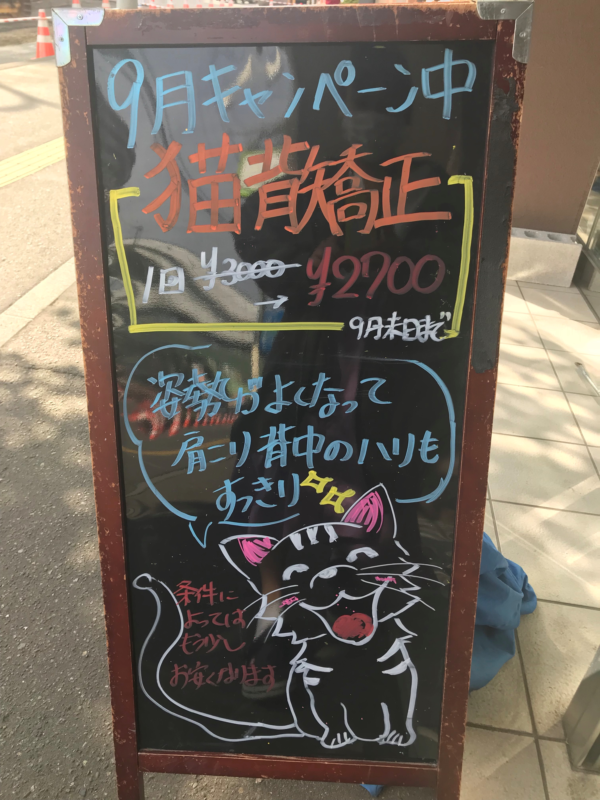 9月キャンペーン中
猫背矯正
1回 ¥3000 → ¥2700
9月末日まで
姿勢がよくなって
肩こり背中のハリも
すっきり
条件に
よっては
もう少し
お安くなります